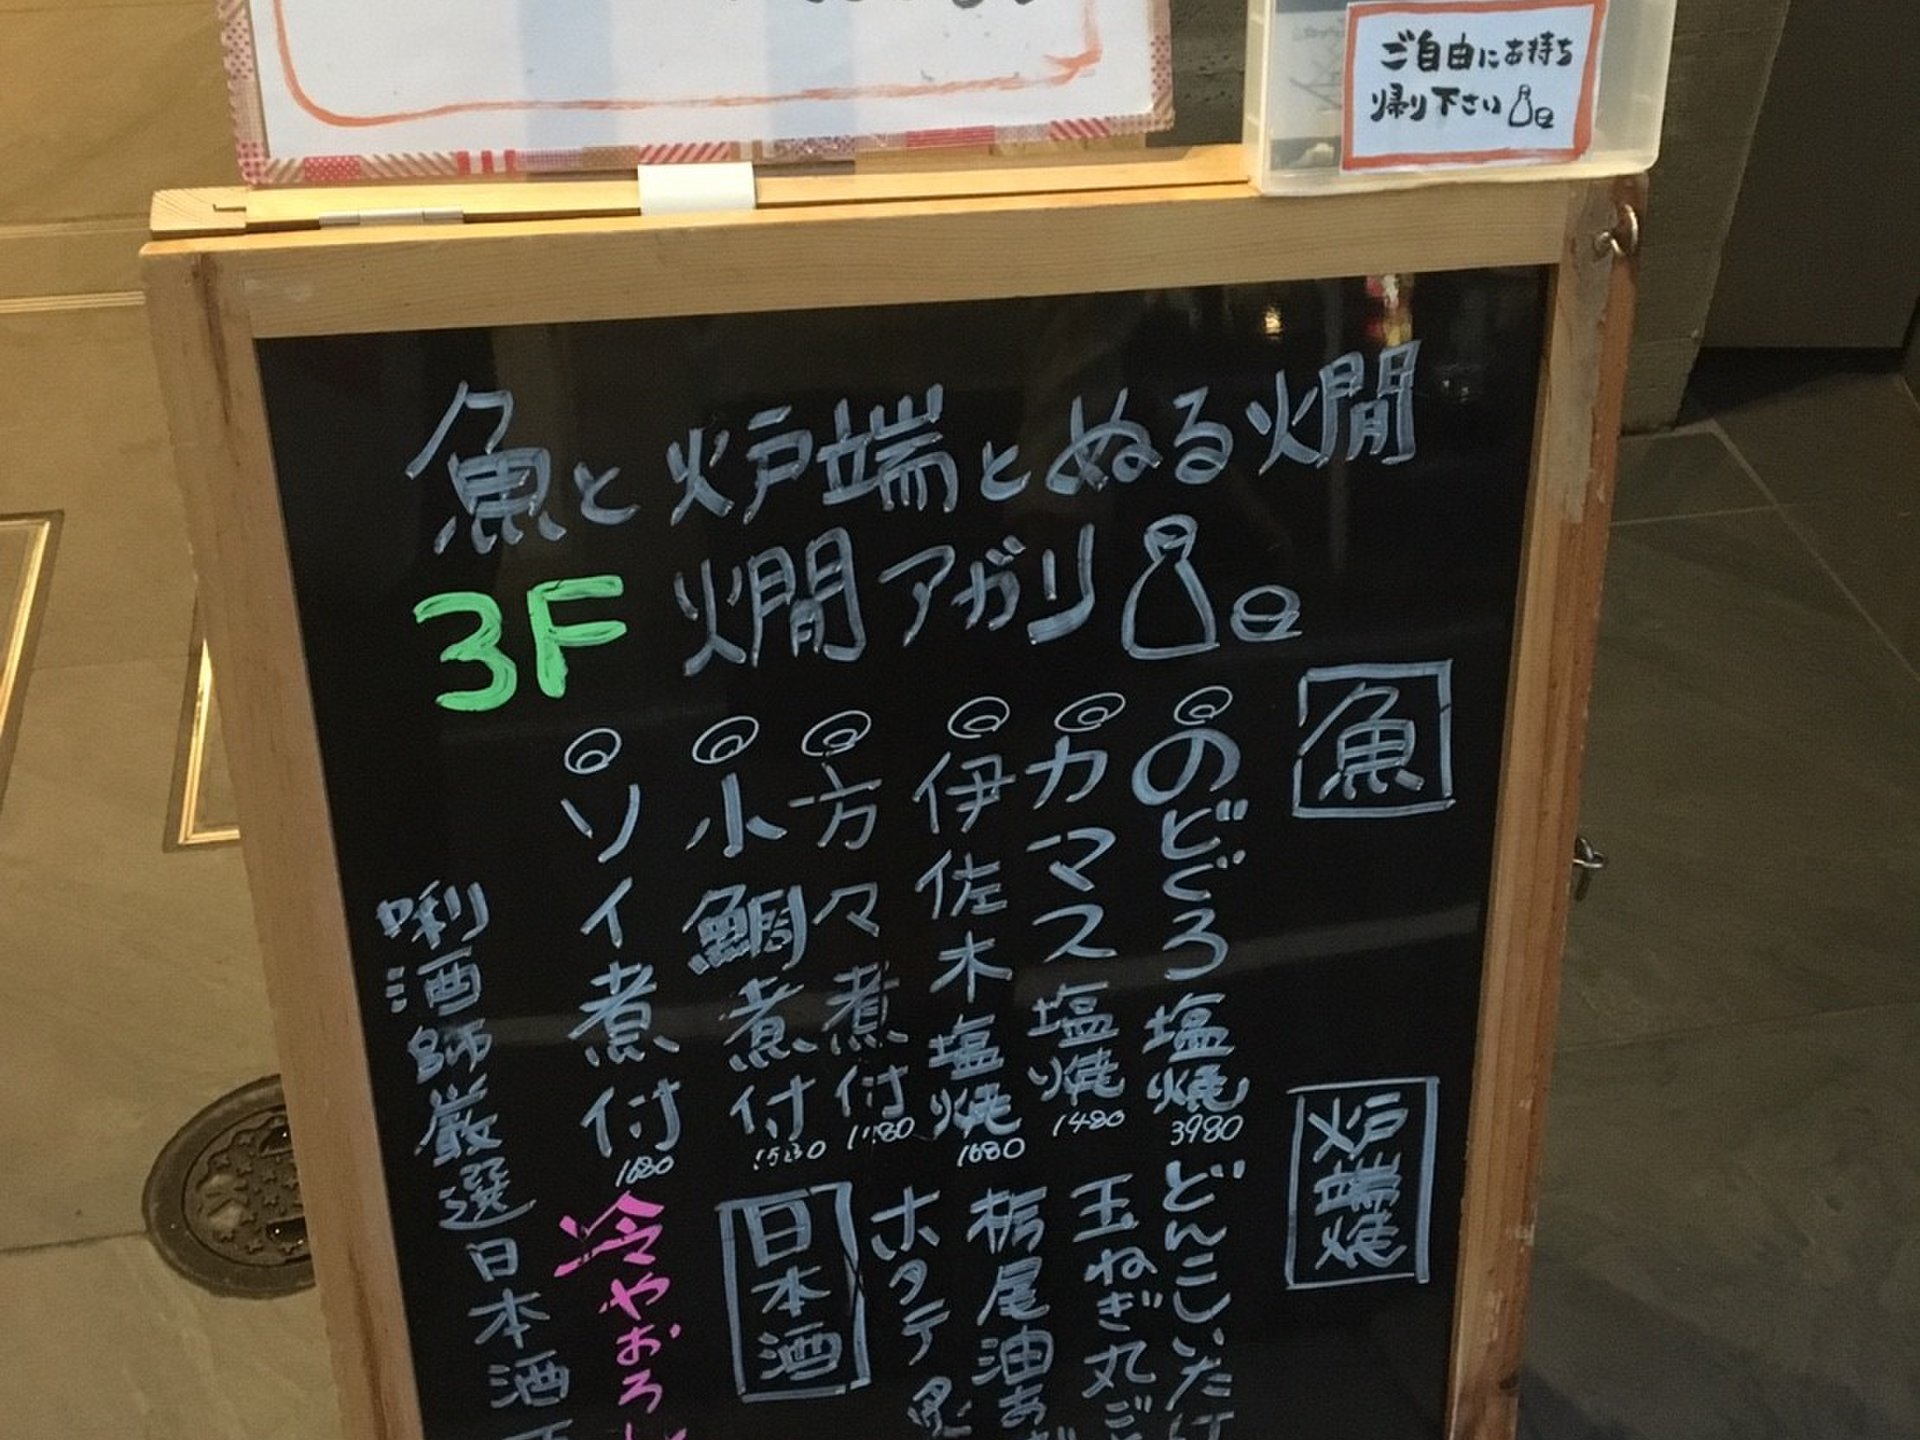 ご自由にお持ち
帰り下さい
魚と炉端とぬる燗
3F 燗アガリ
魚
のどぐろ塩焼 3980
カマス塩焼 1480
伊佐木塩焼 1680
方々煮付
小鯛煮付
ソイ煮付 1680
炉端焼
どんこしいたけ
玉ねぎ丸ご
栃尾油あ
ホタテ
日本酒
冷やおろし
唎酒師厳選日本酒